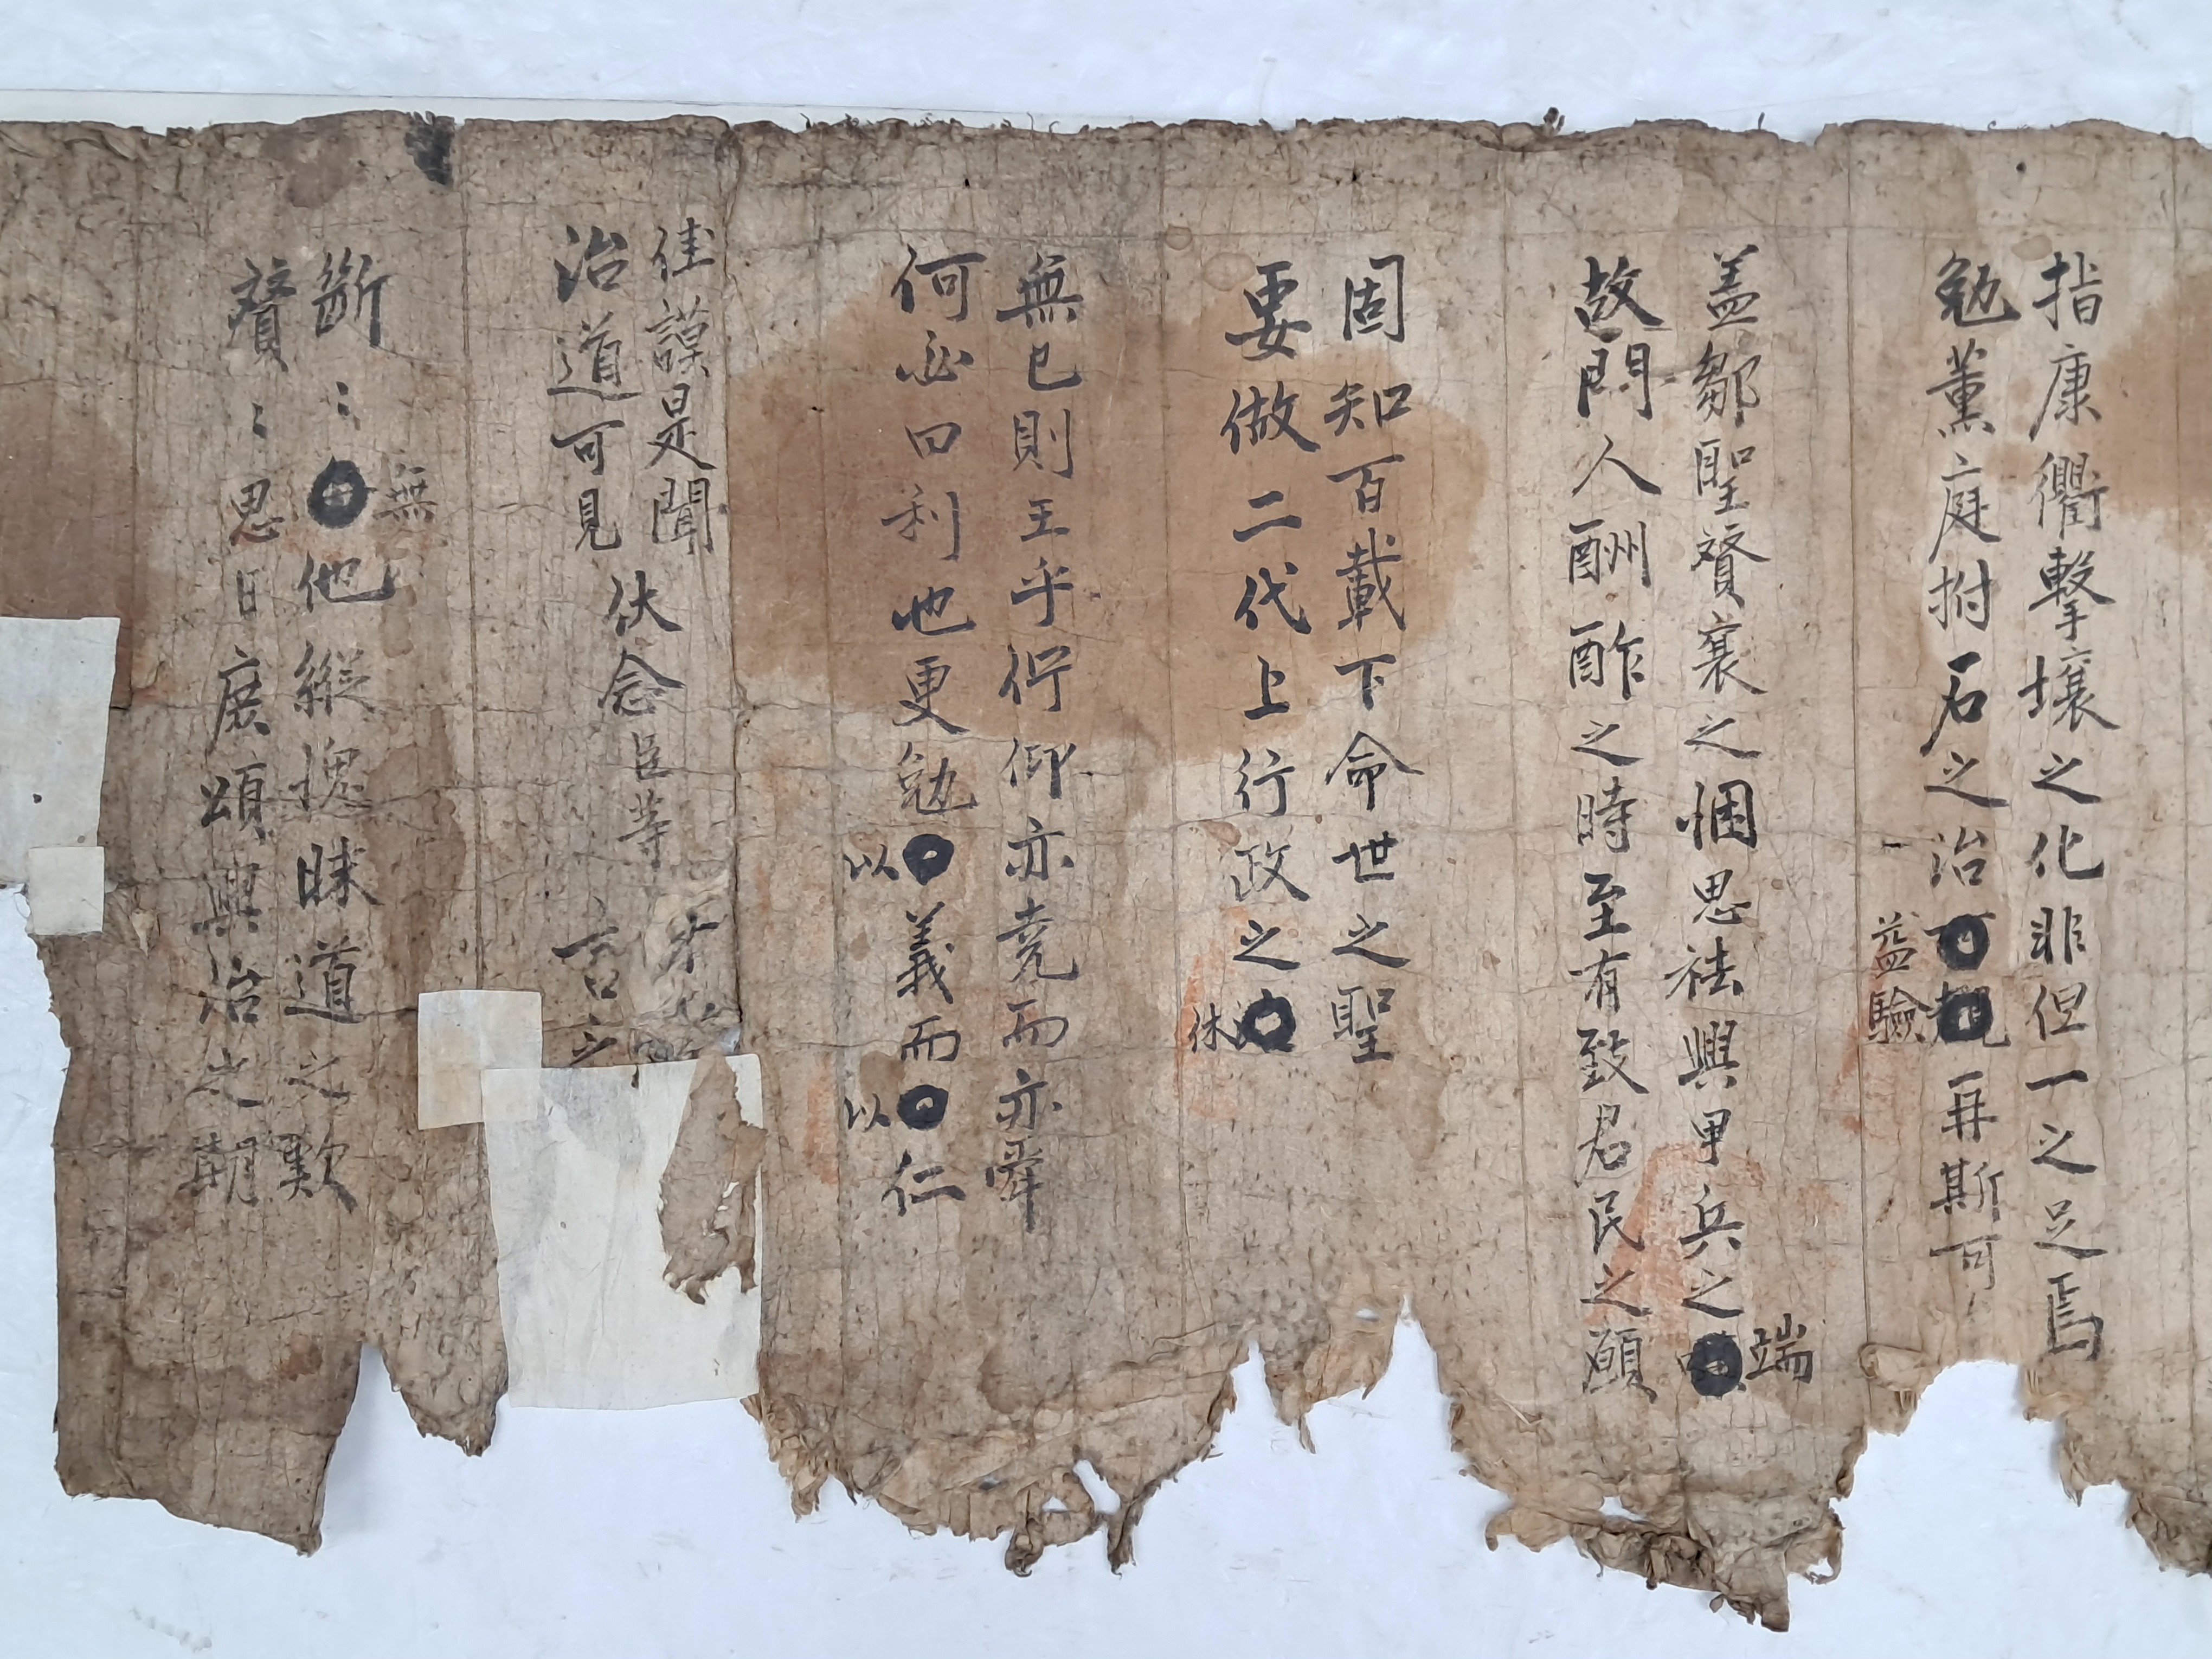 指康衢擊壤之化非但一之足焉
勉薰庭拊石之治益驗再斯可
盖鄒聖賛襄之悃思祛興甲兵之端
故門人酬酢之時至有致君民之願
固知百載下命世之聖
要做二代上行政之休
無已則王乎佇仰亦堯而亦舜
何必曰利也更勉以義而以仁
佳謨是聞
治道可見
伏念臣等
言之
斷〻無他縱愧昧道之歎
賛〻思日展頌興治之期